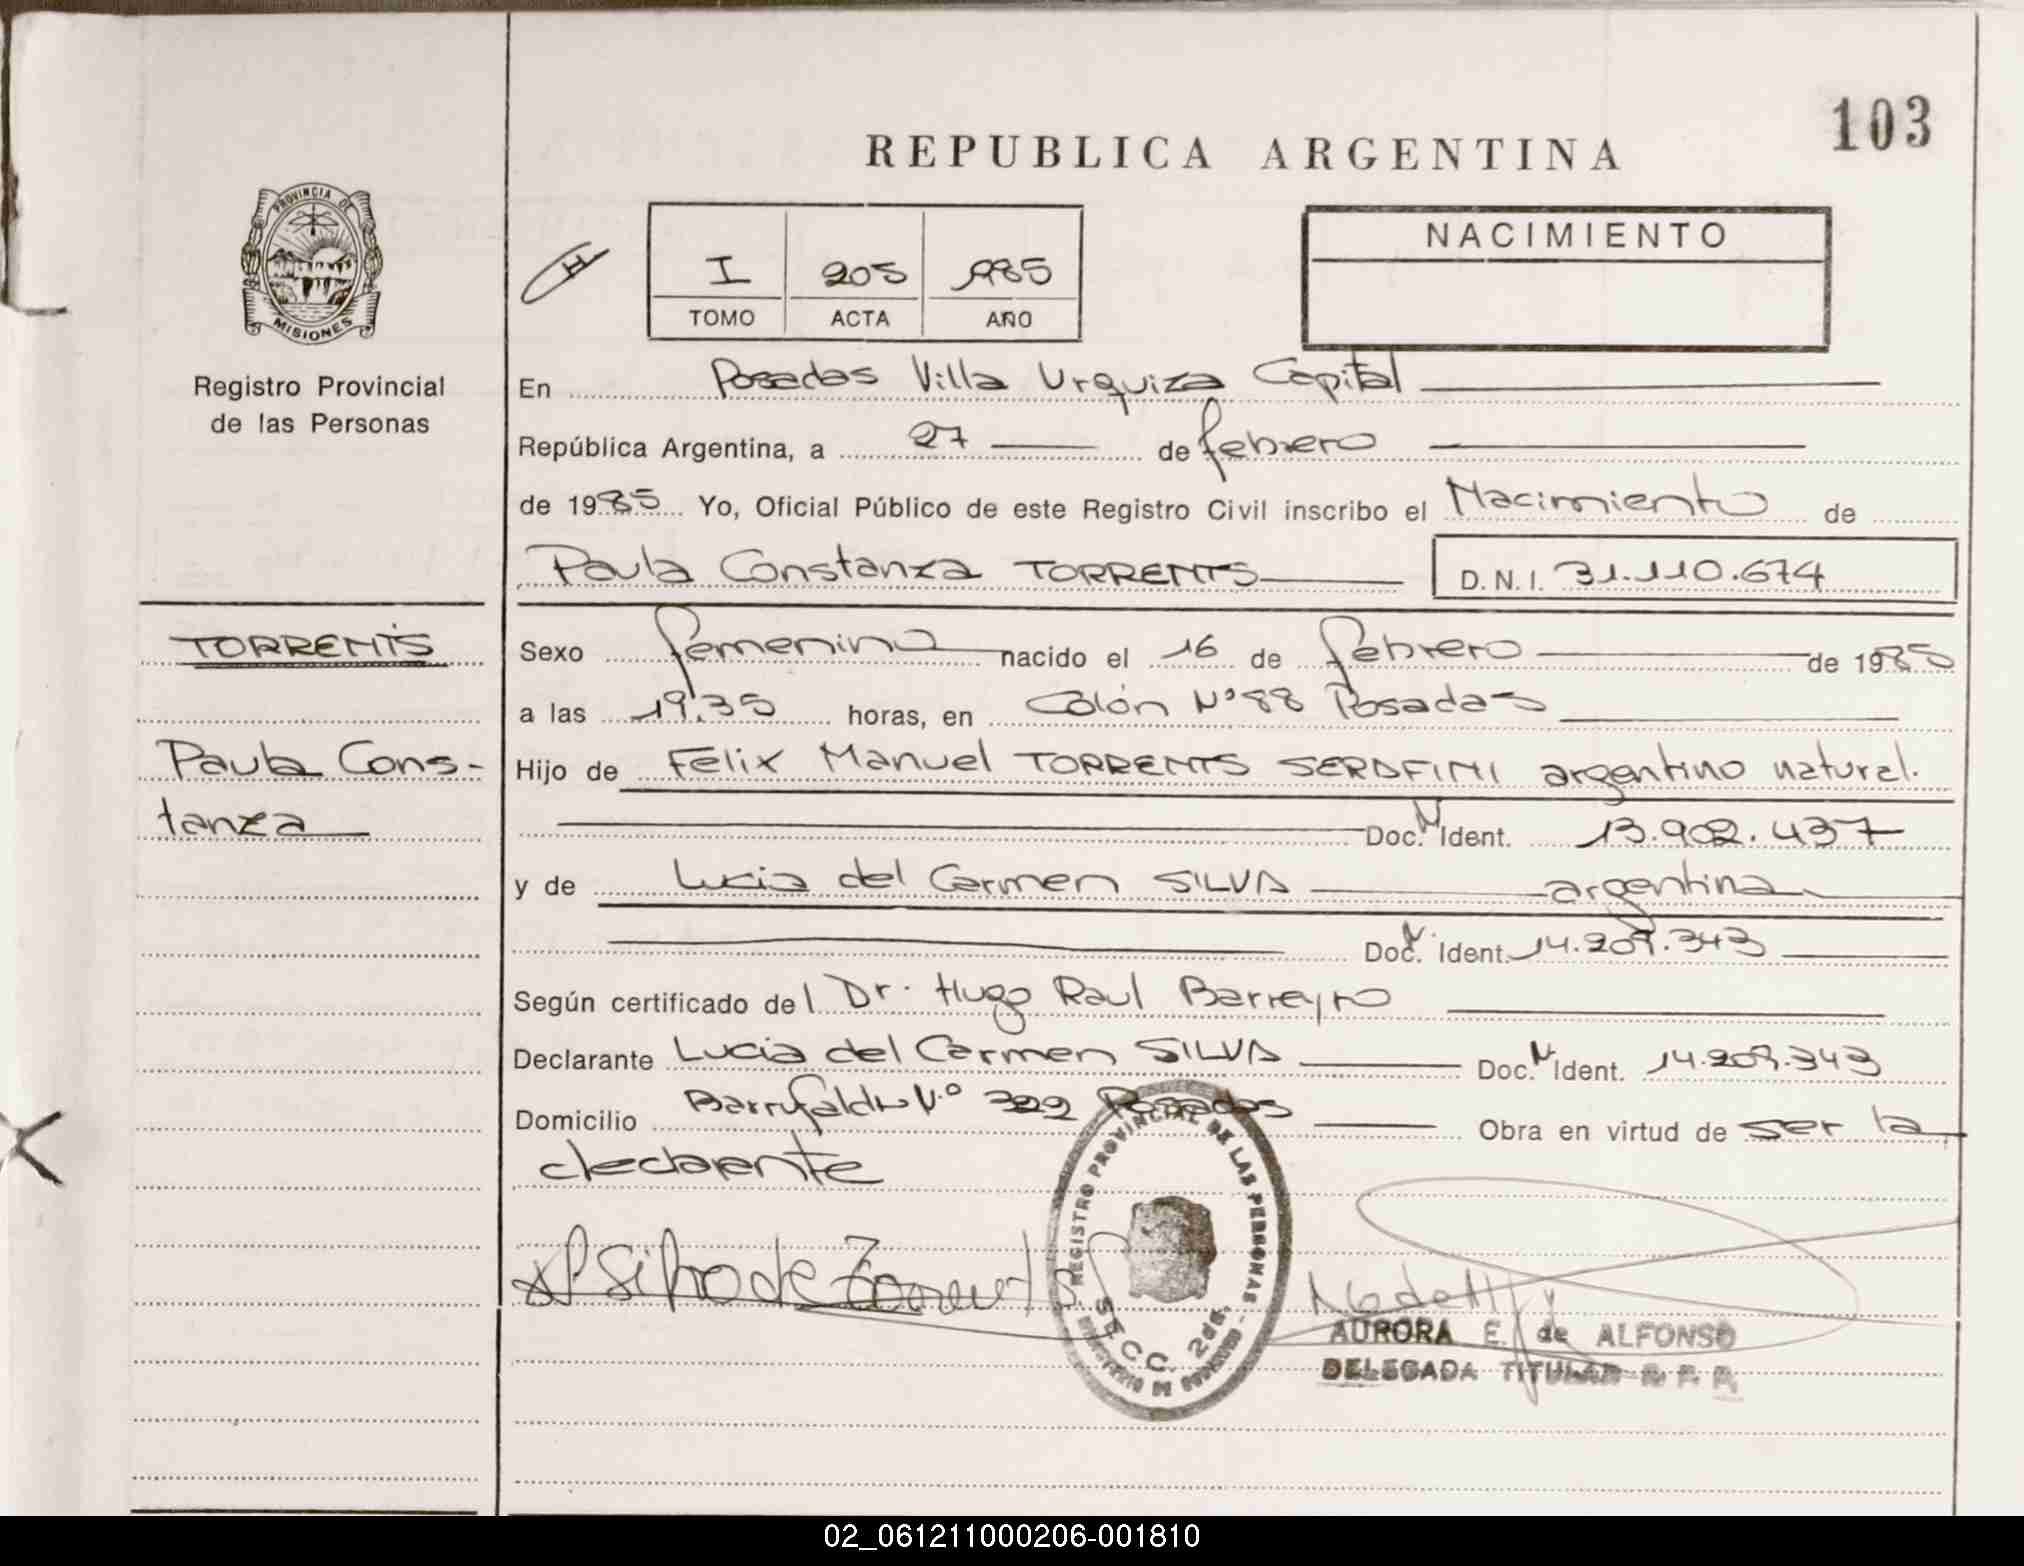 103
REPUBLICA ARGENTINA
PROVINCIA DE
MISIONES
Registro Provincial
de las Personas
H
I 205 1985
TOMO ACTA AÑO
NACIMIENTO
En Posadas Villa Urquiza Capital
República Argentina, a 27 de febrero
de 1985 Yo, Oficial Público de este Registro Civil inscribo el Nacimiento de
Paula Constanza TORRENTS D.N.I. 31.110.674
TORRENTS
Paula Cons-
tanza
Sexo femenino nacido el 16 de febrero de 1985
a las 19.35 horas, en Colón Nº 88 Posadas
Hijo de Felix Manuel TORRENTS SERAFINI argentino natural.
Doc. N Ident. 13.902.437
y de Lucia del Carmen SILVA argentina
Doc. N Ident. 14.209.343
Según certificado del Dr. Hugo Raul Barreyro
Declarante Lucia del Carmen SILVA Doc. N Ident. 14.209.343
Domicilio Barrufaldi N.º 322 Posadas Obra en virtud de ser la
declarante
REGISTRO PROVINCIAL DE LAS PERSONAS
SECC. 2da.
MINISTERIO DE GOBIERNO
AURORA E. de ALFONSO
DELEGADA TITULAR R. P. P.
02_061211000206-001810